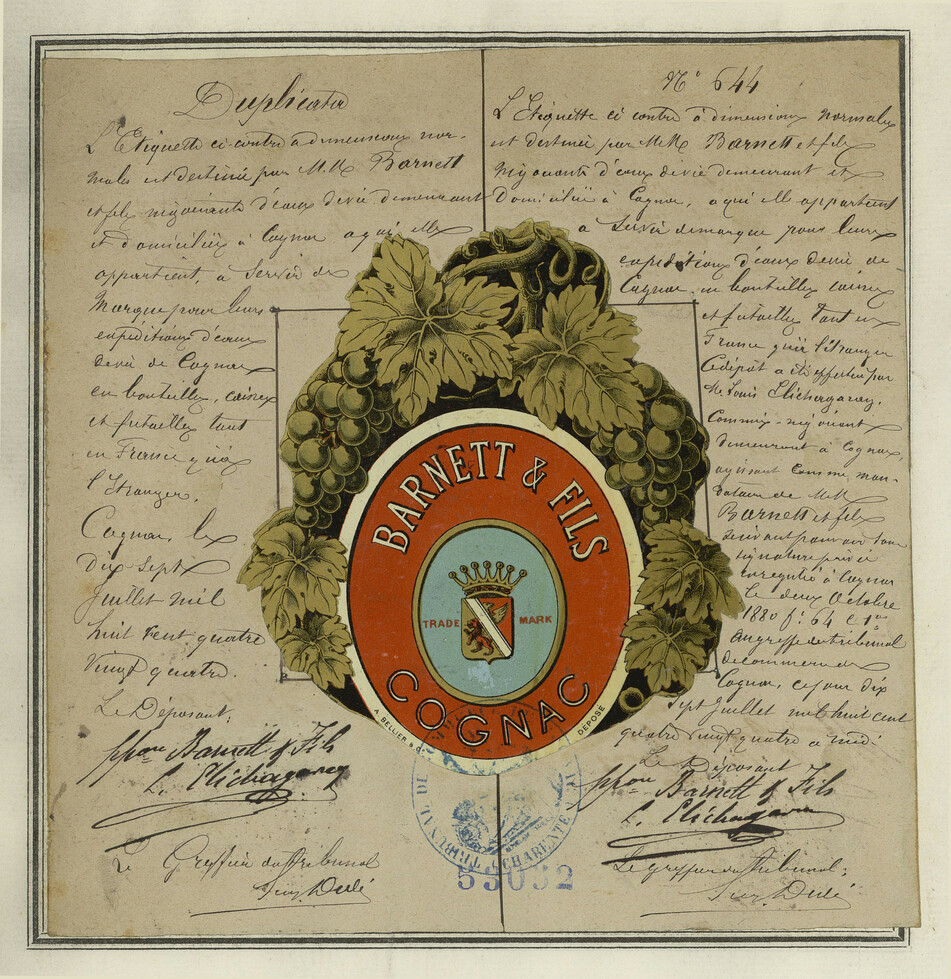 Duplicata
L'Etiquette ci contre à dimensions nor-
males est destinée par M.M. Barnett
et fils négociants d'eaux devie demeurant
et domiciliés à Cognac a qui elle
appartient, a Servir de
Marque pour leurs
expéditions d'eaux
devie de Cognac
en bouteilles, caisses
et futailles tant
en France qu'à
l'Etranger.
Cognac, le
dix sept
Juillet mil
huit cent quatre
vingt quatre.
Le Déposant;
ppon Barnett & Fils
L. Elichagaray
Le Greffier du Tribunal
N° 644
L'Etiquette ci contre à dimensions normales
est destinée par M.M. Barnett et fils
négociants d'eaux devie demeurant et
Domiciliés à Cognac, a qui elle appartient
a Servir demarque pour leurs
expéditions d'eaux devie de
Cognac en bouteilles caisses
et futailles tant en
France qu'à l'étranger
Cedépôt a été effectué par
M. Louis Elichagaray,
Commis-négociant
demeurant à Cognac,
agissant comme man-
dataire de M.M.
Barnett et fils
suivant pouvoir sous
signature privée
enregistré à Cognac
le deux Octobre
1880 f° 64 C 1re
Au greffe du tribunal
decommerce de
Cognac, cejour dix
sept Juillet mil huit cent
quatre vingt quatre a midi
Le Déposant
ppon Barnett & Fils
L. Elichagaray
Le greffier du Tribunal;
BARNETT & FILS
TRADE MARK
COGNAC
A. BELLIER & C.
DÉPOSÉ
TRIBUNAL DE
CHARENTE
53032